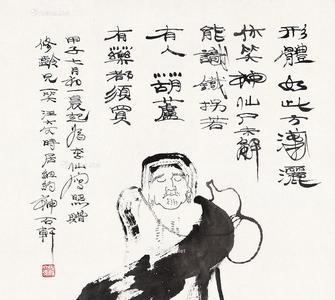 形體如此方瀟灑
休笑神仙尸未解
能識鐵拐若
有人葫蘆
有藥都須買
甲子七月初晨起為李仙寫照贈
修齡兄一笑汪大文時居紐約神石軒